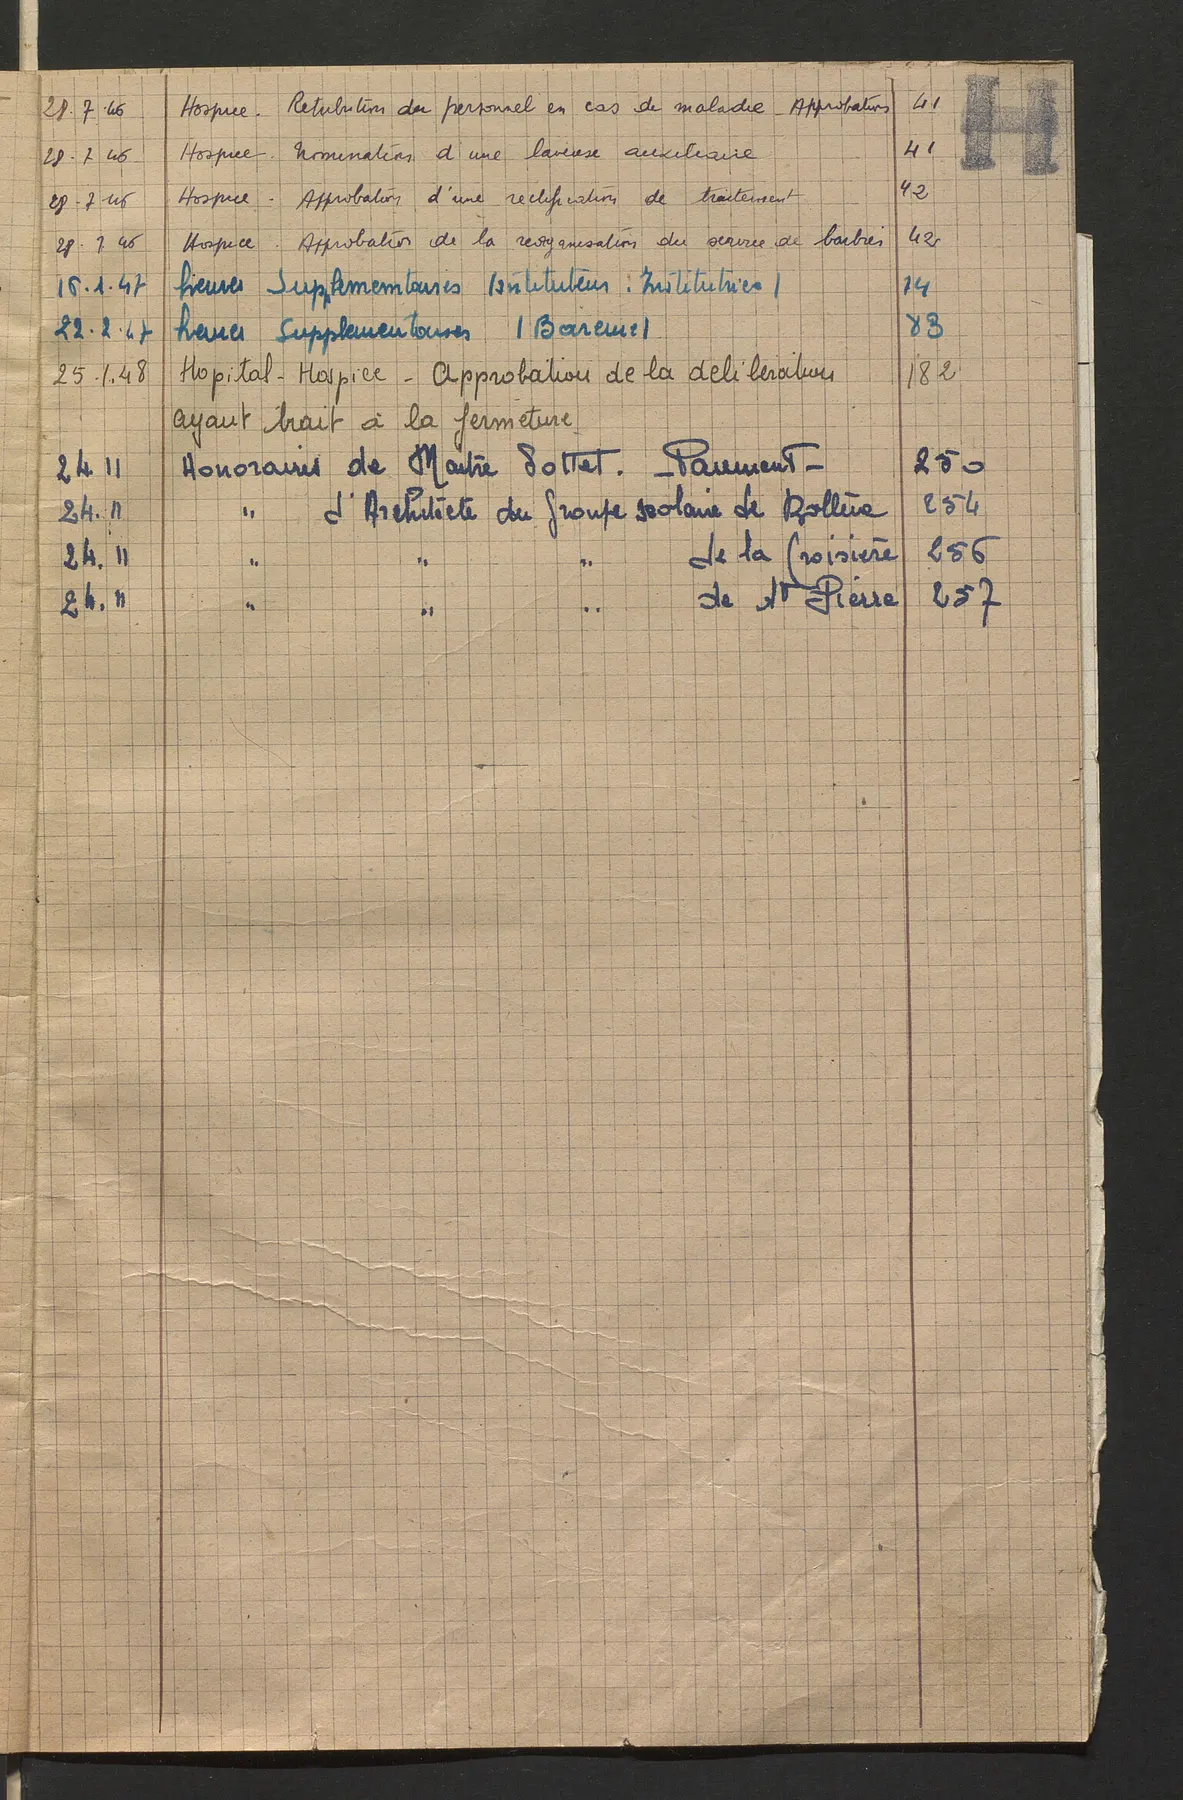 H
28.7.46 Hospice. Retribution du personnel en cas de maladie - Approbation 41
28.7.46 Hospice. Nomination d'une laveuse auxiliaire 41
28.7.46 Hospice. Approbation d'une rectification de traitement 42
28.7.46 Hospice. Approbation de la reorganisation du service de barbier 42
16.1.47 heures Supplementaires (Instituteurs : Institutrices) 74
22.2.47 heures Supplementaires (Bareme) 83
25.1.48 Hopital - Hospice - Approbation de la deliberation 182
ayant trait à la fermeture
24.11 Honoraires de Maitre Pottet. - Paiement - 250
24.11 " d'Architecte du Groupe scolaire de Bollène 254
24.11 " " " de la Croisière 256
24.11 " " " de St Pierre 257